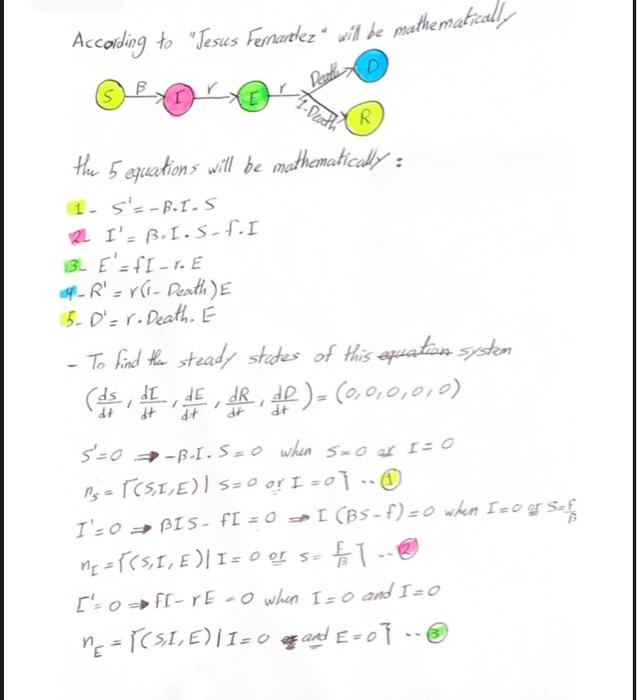 According to "Jesus Fernandez" will be mathematically
S B I r E r Death D
1-Death R
the 5 equations will be mathematically:
1- S'= -β.I.S
2- I' = β.I.S-f.I
3- E'=fI-r.E
4-R' = r(1-Death)E
5- D'= r.Death.E
- To find the steady states of this equation system
(ds/dt, dI/dt, dE/dt, dR/dt, dD/dt) = (0,0,0,0,0)
S'=0 ⇒ -β.I.S=0 when S=0 or I=0
ns = {(S,I,E)| S=0 or I=0} .. 1
I'=0 ⇒ βIS - fI = 0 ⇒ I(βS-f)=0 when I=0 or S=f/β
nI = {(S,I,E)| I=0 or S=f/β} .. 2
E'=0 ⇒ fI-rE=0 when I=0 and I=0
nE = {(S,I,E)| I=0 and E=0} .. 3